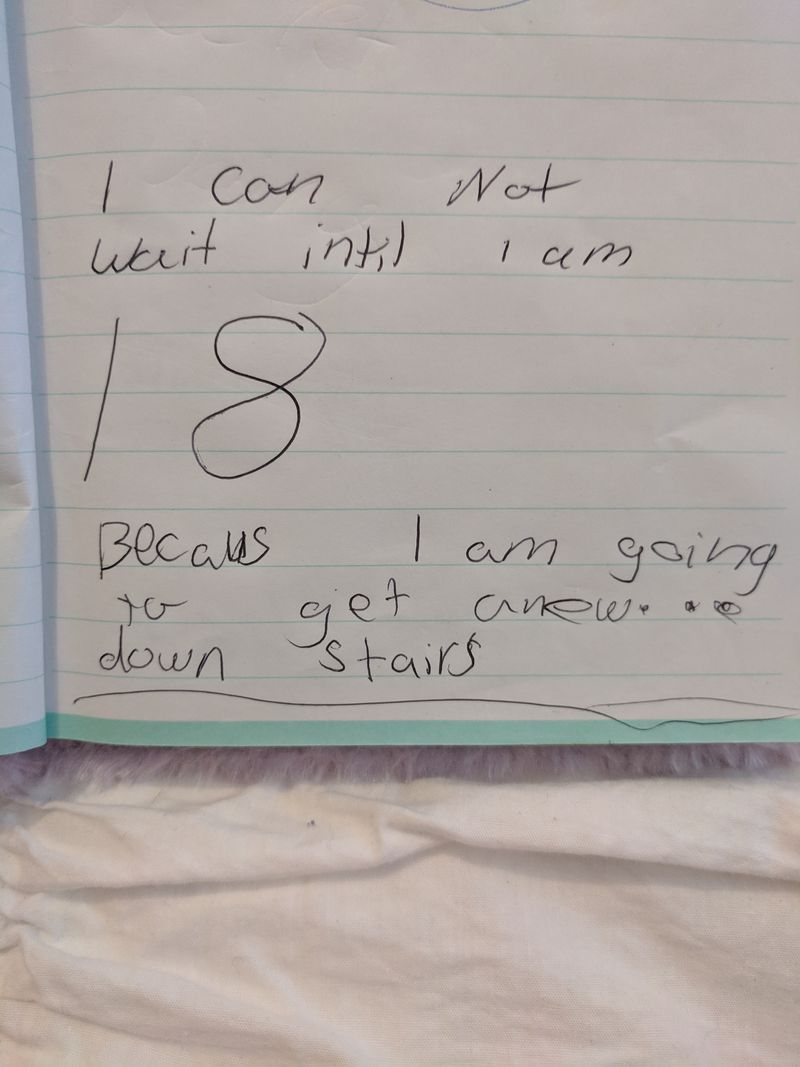 I can Not
wait intil i am
18
Becaus I am going
to get anew....
down stairs